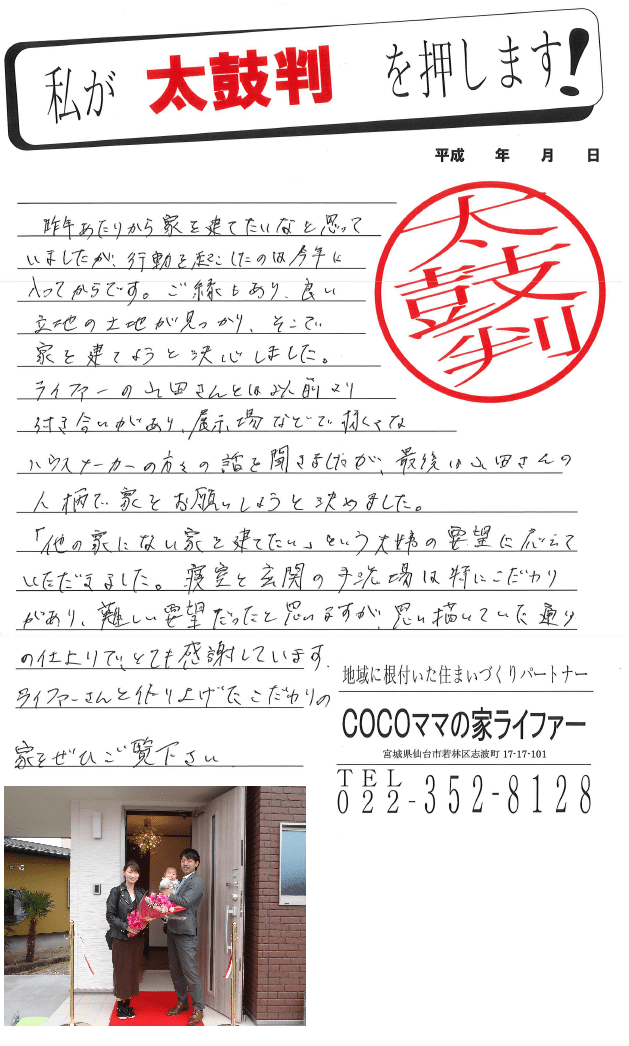 私が 太鼓判 を押します!
平成 年 月 日
太鼓判
昨年あたりから家を建てたいなと思って
いましたが、行動を起こしたのは今年に
入ってからです。ご縁もあり、良い
立地の土地が見つかり、そこで
家を建てようと決心しました。
ライファーの山田さんとは以前より
付き合いがあり、展示場などで様々な
ハウスメーカーの方々の話を聞きましたが、最後は山田さんの
人柄で家をお願いしようと決めました。
「他の家にない家を建てたい」という夫婦の要望に応えて
いただきました。寝室と玄関の手洗場は特にこだわり
があり、難しい要望だったと思いますが、思い描いていた通り
の仕上りで、とても感謝しています。
ライファーさんと作り上げたこだわりの
家をぜひご覧下さい
地域に根付いた住まいづくりパートナー
COCOママの家ライファー
宮城県仙台市若林区志波町 17-17-101
TEL
022-352-8128